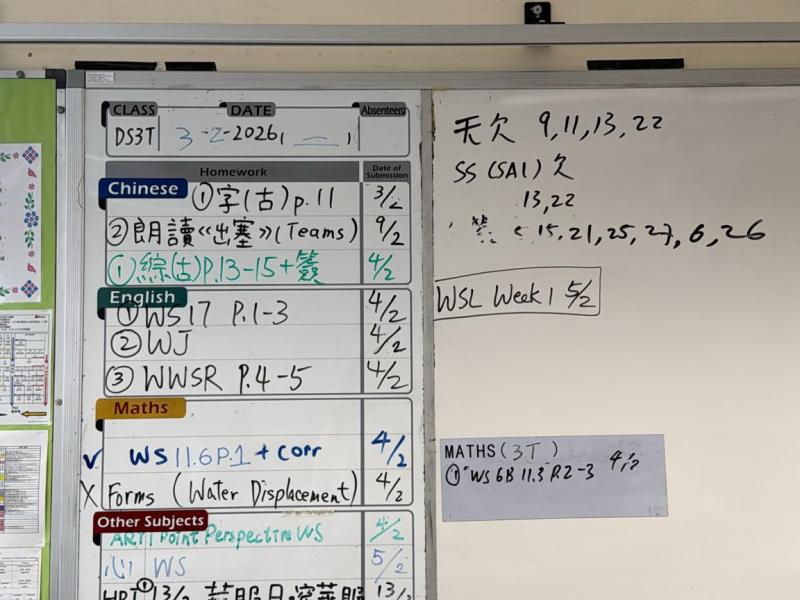 CLASS DATE Absentee(s)
DS3T 3-2-2026
Homework Date of Submission
Chinese
①字(古)p.11 3/2
②朗讀《出塞》(Teams) 9/2
①綜(古)P.13-15+簽 4/2
English
①WS17 P.1-3 4/2
②WJ 4/2
③WWSR P.4-5 4/2
Maths
✓ WS 11.6 P.1 + corr 4/2
X Forms (Water Displacement) 4/2
Other Subjects
ART 1 Point Perspective WS 4/2
心 WS 5/2
①13/2 13/2
欠 9,11,13,22
SS (SA1) 欠
13,22
15,21,25,27,6,26
WSL Week 1 5/2
MATHS (3T)
① WS 6B 11.3 P.2-3